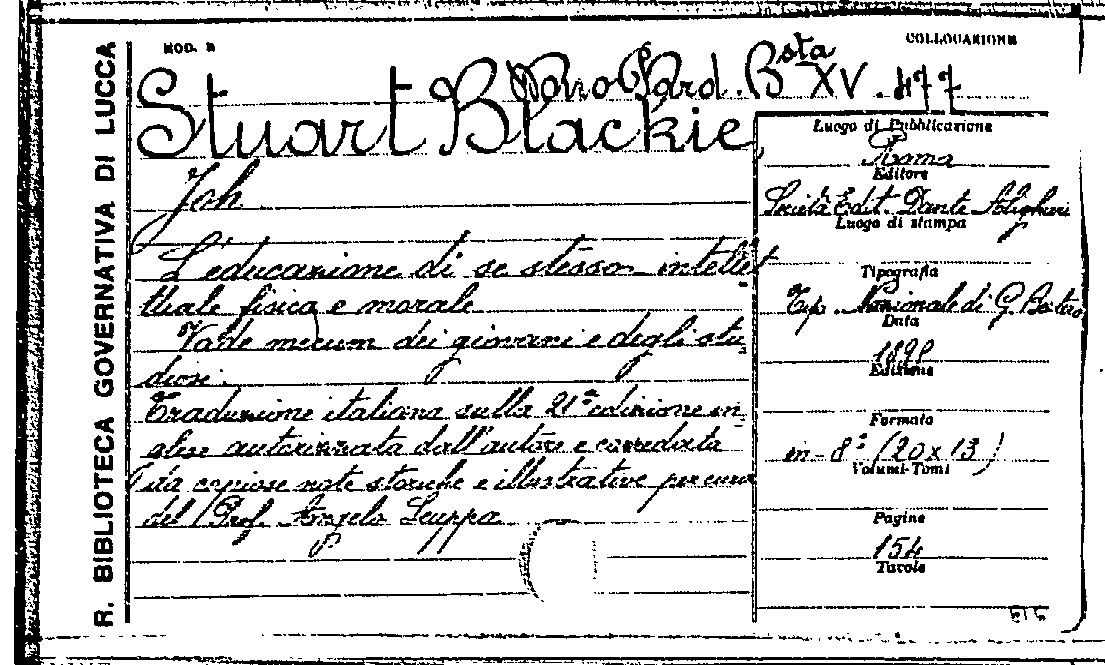 R. BIBLIOTECA GOVERNATIVA DI LUCCA
MOD. B
COLLOCAZIONE
Dono Pard. Bsta XV. 477
Stuart Blackie,
Joh
L'educazione di se stesso intellet
tuale fisica e morale
Vade mecum dei giovani e degli stu
diosi.
Traduzione italiana sulla 21ª edizione in
glese autorizzata dall'autore e corredata
da copiose note storiche e illustrative per cura
del Prof. Angelo Scuppa
Luogo di Pubblicazione
Roma
Editore
Società Edit. Dante Alighieri
Luogo di stampa
Tipografia
Tip. Nazionale di G. Bertero
Data
1898
Edizione
Formato
in-8º (20x13)
Volumi-Tomi
Pagine
154
Tavole